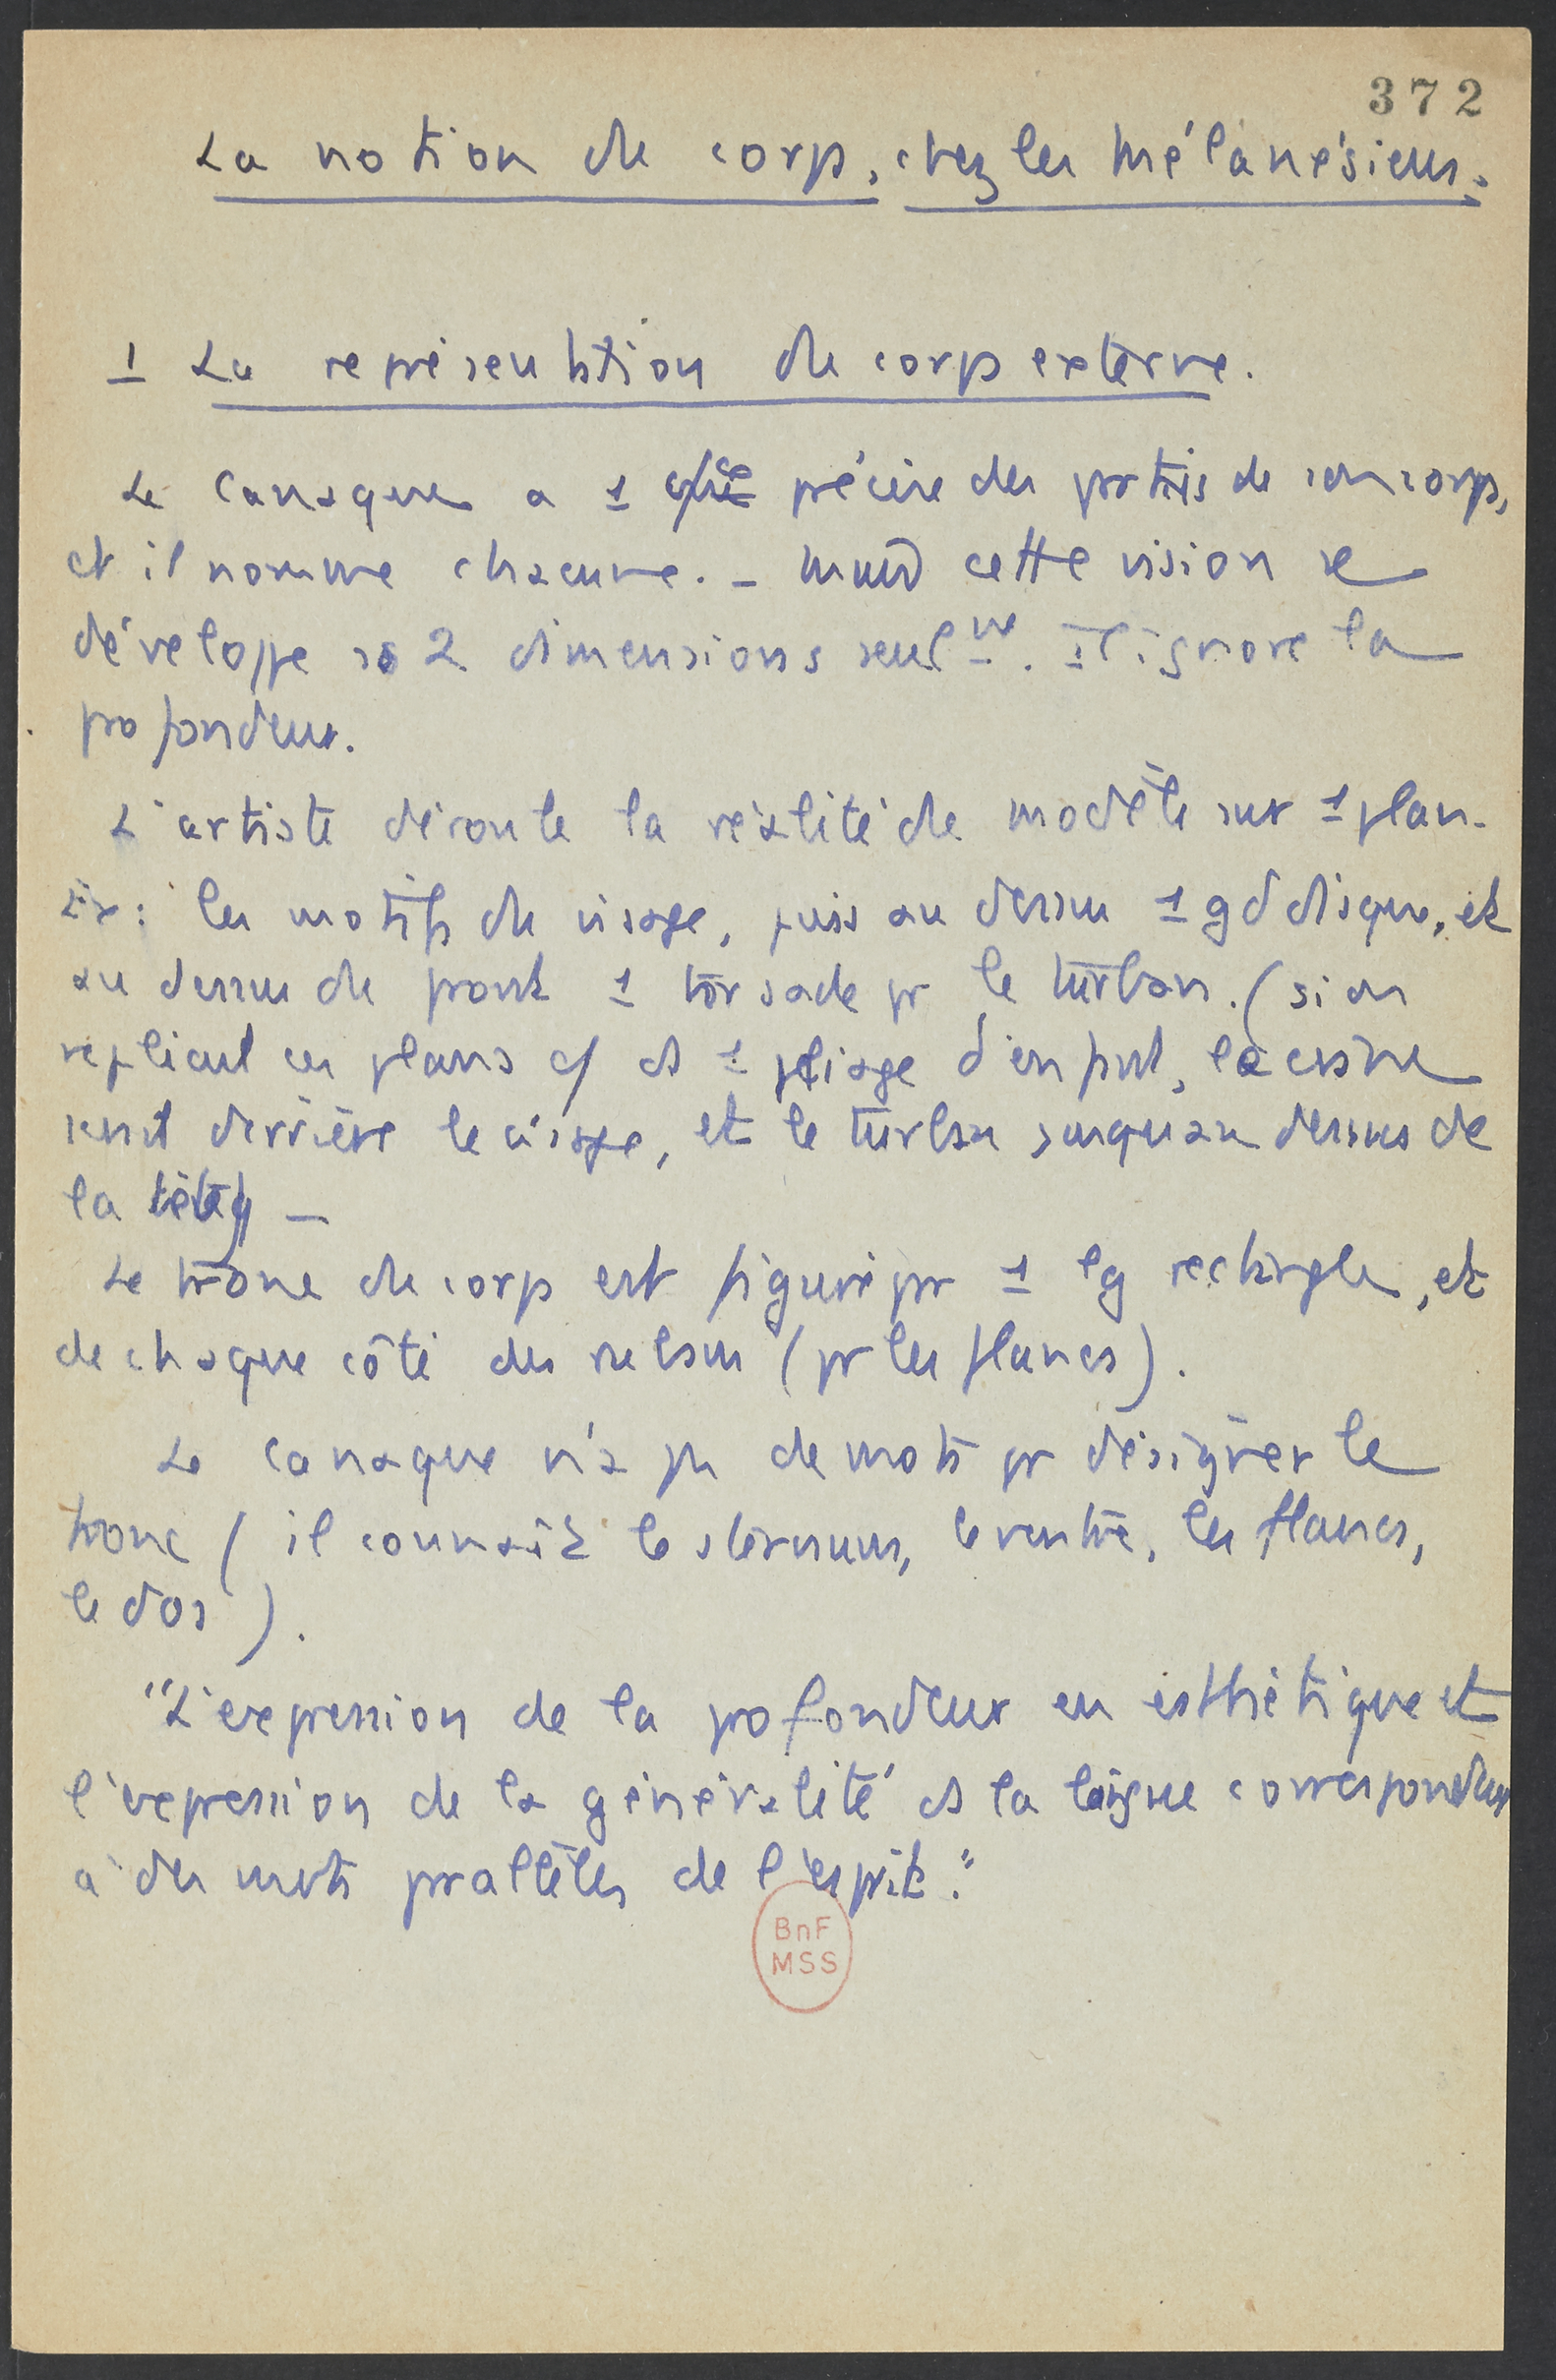 372
La notion du corps chez les Mélanésiens.
1 La représentation du corps externe.
Le Canaque a 1 précise des parties de son corps,
et il nomme chacune. – Mais cette vision se
développe s/s 2 dimensions seulᵐᵉ. Il ignore la
profondeur.
L'artiste déroule la réalité du modèle sur 1 plan.
Ex : les motifs du visage, puis au dessus 1 gd disque, et
au dessus du front 1 torsade pr le turban. (si on
repliait ces plans c/ ds 1 pliage d'enfant, le
serait derrière le visage, et le turban jusqu'au dessus de
la tête) –
Le tronc du corps est figuré par 1 lg rectangle, et
de chaque côté des rubans (pr les flancs).
Le Canaque n'a pas de mots pr désigner le
tronc (il connaît le sternum, le ventre, les flancs,
le dos).
"L'expression de la profondeur en esthétique et
l'expression de la généralité ds la langue correspondent
à des mvts parallèles de l'esprit."
BnF
MSS